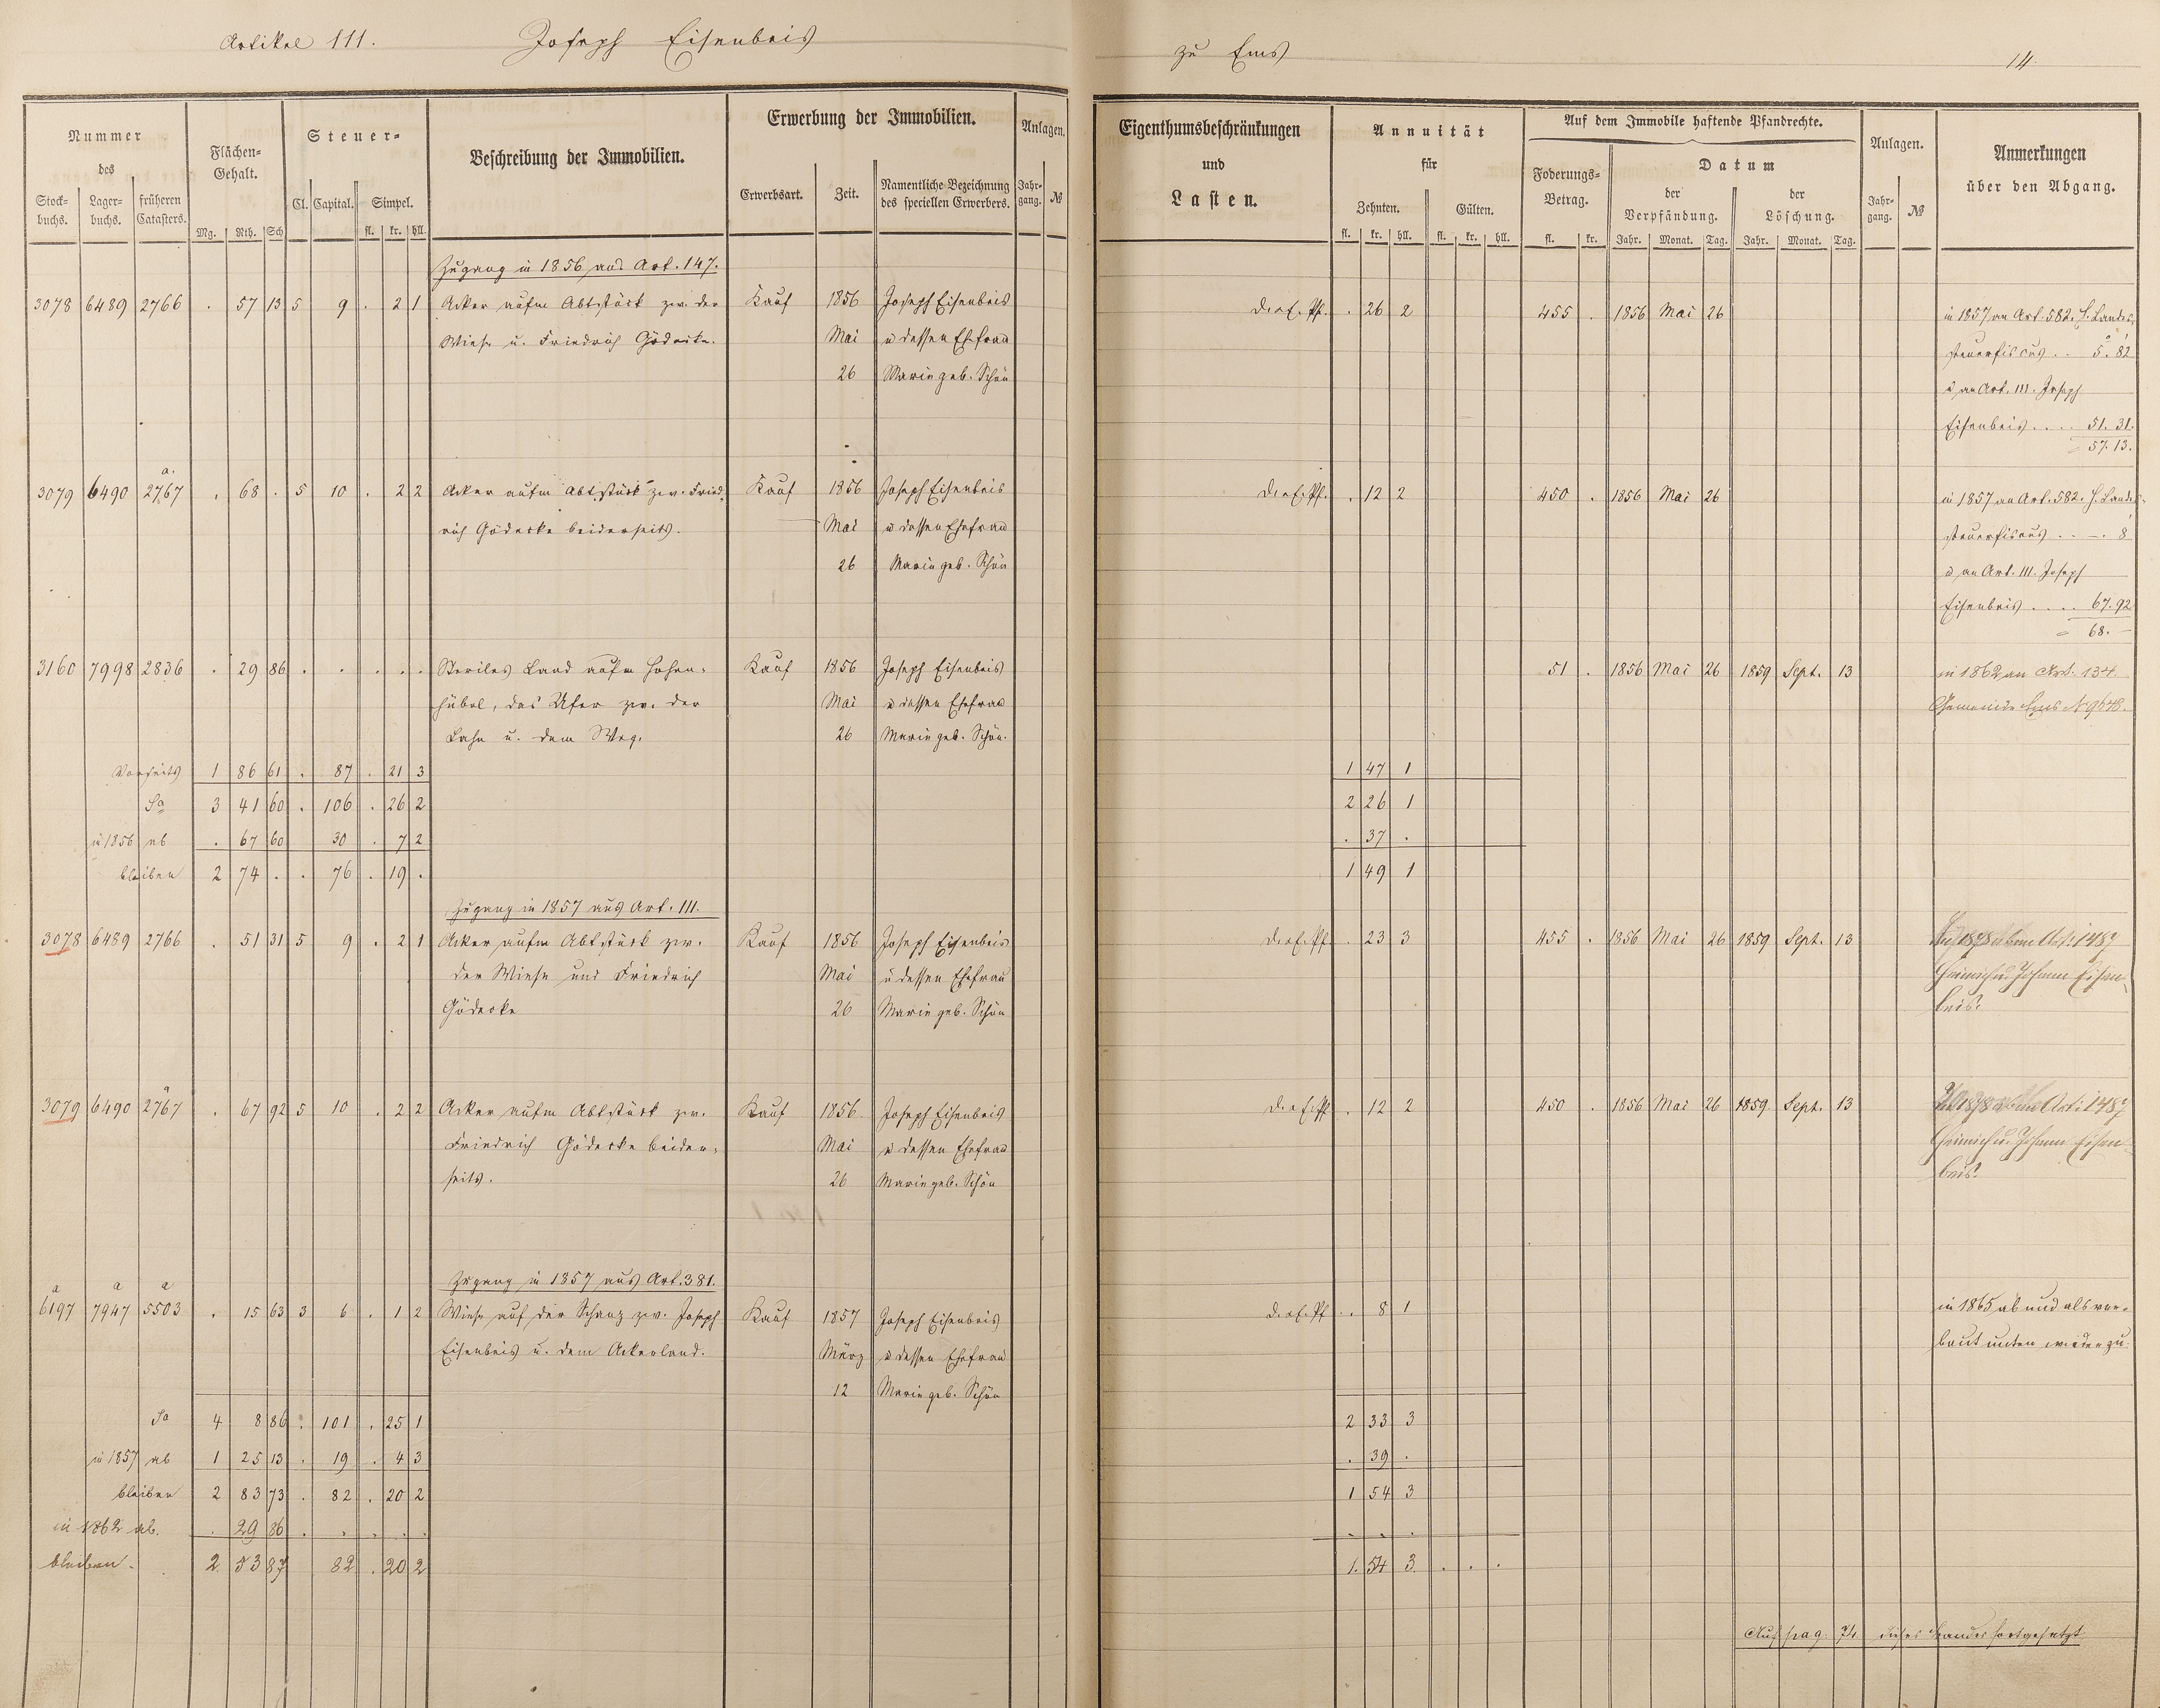 Artikel 111. Joseph Eisenbeis zu Ems 14
Nummer des
Stock-buchs. Lager-buchs. früheren Catasters.
Flächen-Gehalt.
Mg. Rth. Sch
Steuer-
Cl. Capital. Simpel.
fl. kr. hll.
Beschreibung der Immobilien.
Erwerbung der Immobilien.
Erwerbsart. Zeit. Namentliche Bezeichnung des speciellen Erwerbers.
Anlagen.
Jahr-gang. №
Eigenthumsbeschränkungen
und
Lasten.
Annuität
für
Zehnten. Gülten.
fl. kr. hll. fl. kr. hll.
Auf dem Immobile haftende Pfandrechte.
Foderungs-Betrag.
fl. kr.
Datum
der Verpfändung. der Löschung.
Jahr. Monat. Tag. Jahr. Monat. Tag.
Anlagen.
Jahr-gang. №
Anmerkungen
über den Abgang.
Zugang in 1856 aus Art. 147.
3078 6489 2766 . 57 13 5 9 . 2 1 Acker aufm Abtstück zw. der Kauf 1856 Joseph Eisenbeis . 26 2 455 . 1856 Mai 26 in 1857 an Art. 582. H. Landes-
Wiese u. Friedrich Gödecke. Mai u dessen Ehefrau steuerfiscus . . 5. 82
26 Marie geb. Schön u an Art. 111. Joseph
Eisenbeis . . . . 51. 31.
57. 13.
3079 6490 2767 a. . 68 . 5 10 . 2 2 Acker aufm Abtstück zw. Fried- Kauf 1856 Joseph Eisenbeis . 12 2 450 . 1856 Mai 26 in 1857 an Art. 582. H. Landes-
rich Gödecke beiderseits. Mai u dessen Ehefrau steuerfiscus . . –. 8
26 Marie geb. Schön u an Art. 111. Joseph
Eisenbeis . . . . 67. 92
= 68. –
3160 7998 2836 . 29 86 . . . . . Steriles Land aufm Hohen- Kauf 1856 Joseph Eisenbeis 51 . 1856 Mai 26 1859 Sept. 13 in 1862 an Art. 134.
hübel, das Ufer zw. der Mai u dessen Ehefrau Gemeinde Ems N 9648.
Lahn u. dem Weg. 26 Marie geb. Schön.
Vorseits 1 86 61 . 87 . 21 3 1 47 1
Sa 3 41 60 . 106 . 26 2 2 26 1
in 1856 ab . 67 60 30 . 7 2 . 37 .
bleiben 2 74 . . 76 . 19 . 1 49 1
Zugang in 1857 aus Art. 111.
3078 6489 2766 . 51 31 5 9 . 2 1 Acker aufm Abtstück zw. Kauf 1856 Joseph Eisenbeis . 23 3 455 . 1856 Mai 26 1859 Sept. 13 Art. 1487
der Wiese und Friedrich Mai u dessen Ehefrau Heinrich u. Johann Eisen-
Gödecke 26 Marie geb. Schön beis.
3079 6490 2767 a . 67 92 5 10 . 2 2 Acker aufm Abtstück zw. Kauf 1856 Joseph Eisenbeis . 12 2 450 . 1856 Mai 26 1859 Sept. 13 Art. 1487
Friedrich Gödecke beider- Mai u dessen Ehefrau Heinrich u. Johann Eisen-
seits. 26 Marie geb. Schön beis.
Zugang in 1857 aus Art. 381.
6197 a 7947 a 5503 a . 15 63 3 6 . 1 2 Wiese auf der Schanz zw. Joseph Kauf 1857 Joseph Eisenbeis . 8 1 in 1865 ab und als ver-
Eisenbeis u. dem Ackerland. März u dessen Ehefrau baut unten wieder zu.
12 Marie geb. Schön
Sa 4 8 86 . 101 . 25 1 2 33 3
in 1857 ab 1 25 13 . 19 . 4 3 . 39 .
bleiben 2 83 73 . 82 . 20 2 1 54 3
in 1862 ab. . 29 86 . . . . . . . .
bleiben. 2 53 87 82 . 20 2 1. 54 3 . . .
Auf pag. 74 dieses Bandes fortgesetzt